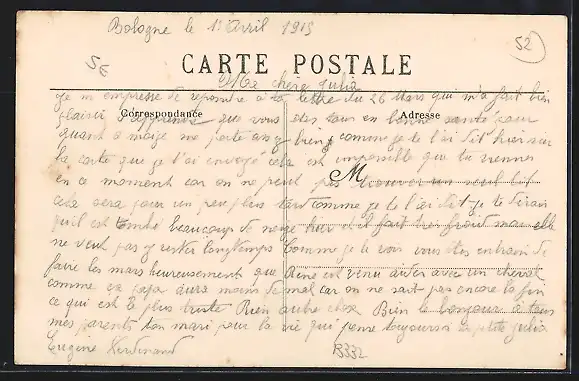 Bologne le 1 Avril 1915
52
5E
CARTE POSTALE
Ma chère Julia
Je m'empresse de repondre a ta lettre du 26 Mars qui m'a fait bien
Correspondance
Adresse
plaisir d'apprendre que vous etes tous en bonne santé pour
quant a moi je me porte assez bien comme je te l'ai dit hier sur
la carte que je t'ai envoyé cela est impossible que tu viennes
M
en ce moment car on ne peut pas trouver un seul lit
cela sera pour un peu plus tard comme je te l'ai dit je te dirais
qu'il est tombé beaucoup de neige hier et il fait tres froid mais elle
ne veut pas y rester longtemps Comme je le vois vous etes entrain de
faire les mars heureusement que est venu aider avec un cheval
comme ça papa aura moins de mal car on ne sait pas encore la fin
ce qui est le plus triste Rien autre chose Bien le bonjour à tous
mes parents ton mari pour la vie qui pense toujours a sa petite Julia
Eugène Ferdinand
B332